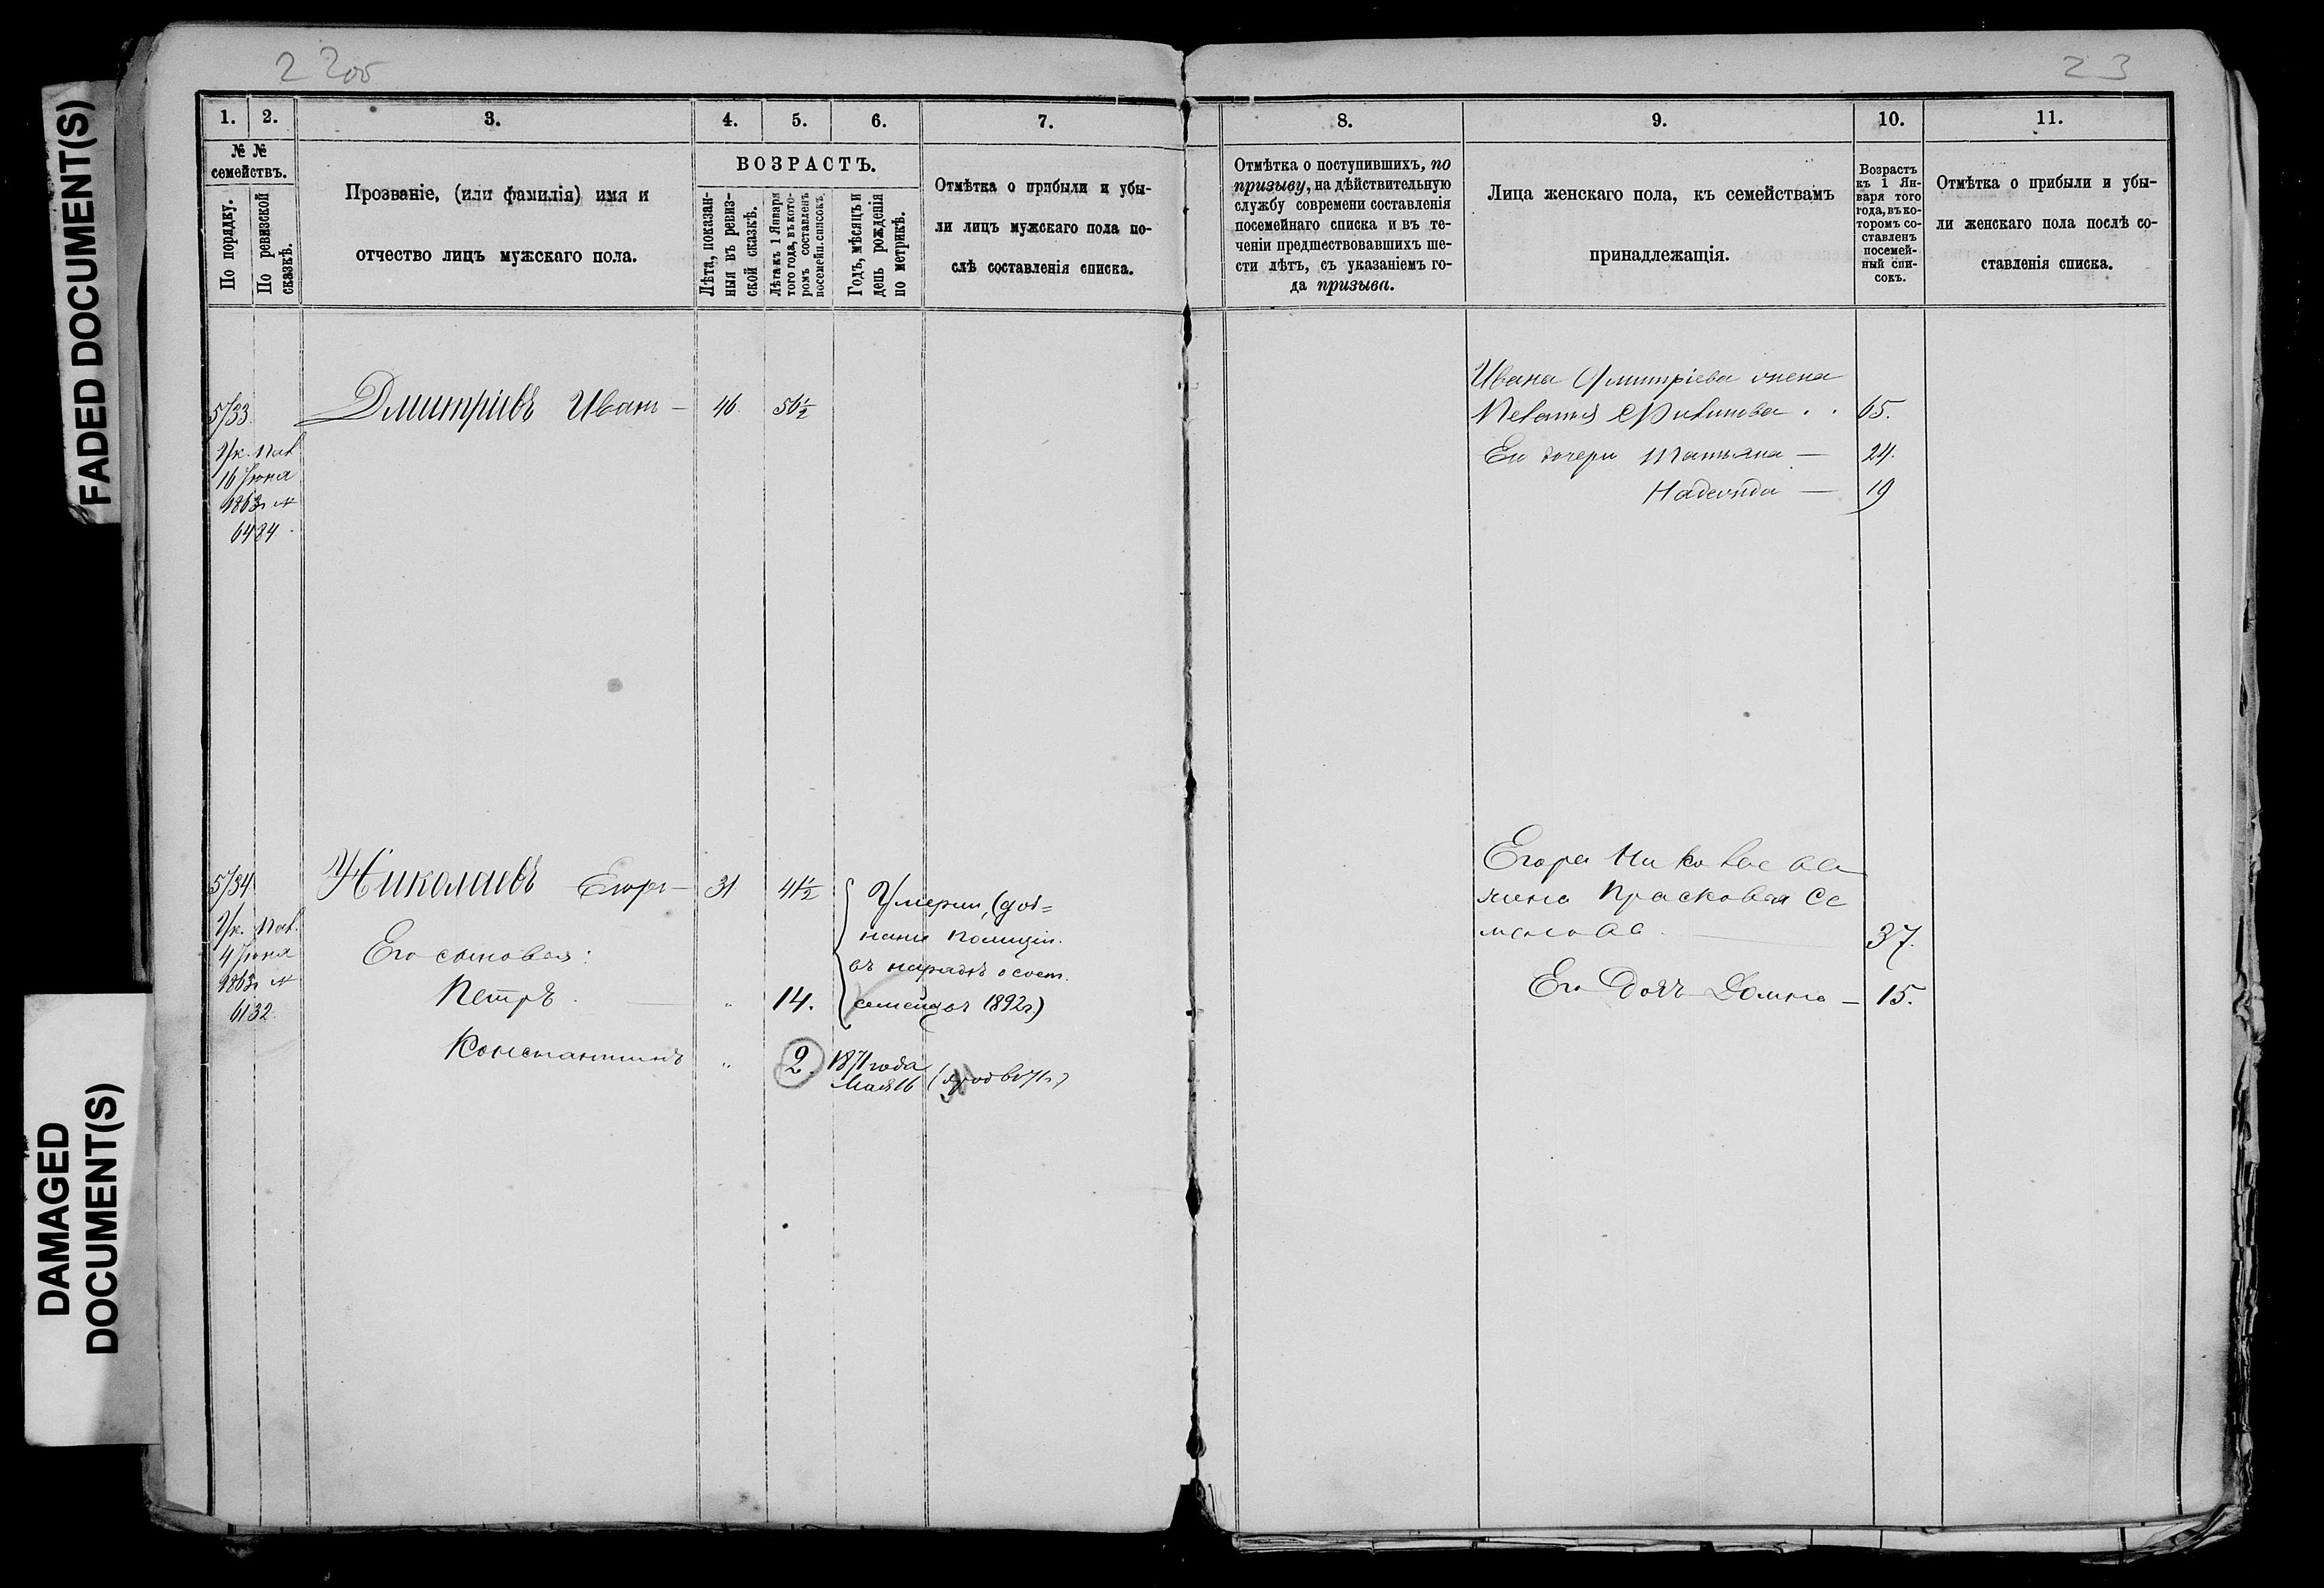 FADED DOCUMENT(S)
DAMAGED
DOCUMENT(S)
22об
23
1.
2.
3.
4.
5.
6.
7.
№ №
семействъ.
По порядку.
По ревизской
сказкѣ.
Прозваніе, (или фамилія) имя и
отчество лицъ мужскаго пола.
ВОЗРАСТЪ.
Лѣта, показан-
ныя въ ревиз-
ской сказкѣ.
Лѣта къ 1 Января
того года, въ кото-
ромъ составленъ
посемейн. списокъ.
Годъ, мѣсяцъ и
день рожденія
по метрикѣ.
Отмѣтка о прибыли и убы-
ли лицъ мужскаго пола по-
слѣ составленія списка.
5/33
Ук. Пал.
16 Іюня
1863 г №
6484.
Дмитріевъ Иванъ — 46. 56½
5/34
Ук. Пал.
4 Іюня
1863 г №
6132.
Николаевъ Егоръ — 31 41½
Его сыновья:
Петръ. — „ 14.
Константинъ „ 2. 1871 года
Мая 16
Умерли, (доз=
наніе Полиціи
въ нарядѣ о сост.
семействъ 1892 г.)
8.
9.
10.
11.
Отмѣтка о поступившихъ, по
призыву, на дѣйствительную
службу современи составленія
посемейнаго списка и въ те-
ченіи предшествовавшихъ ше-
сти лѣтъ, съ указаніемъ го-
да призыва.
Лица женскаго пола, къ семействамъ
принадлежащія.
Возрастъ
къ 1 Ян-
варя того
года, въ ко-
торомъ со-
ставленъ
посемей-
ный спи-
сокъ.
Отмѣтка о прибыли и убы-
ли женскаго пола послѣ со-
ставленія списка.
Ивана Дмитріева жена
Меланья Филипова . . 65.
Его дочери Татьяна — 24.
Надежда — 19
Егора Николаева
жена Прасковья Се
менова — 37.
Его дочь Домна — 15.